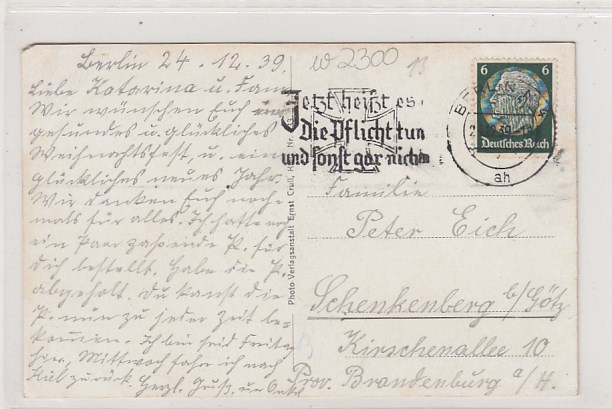 Berlin 24.12.39.
Liebe Katarina u. Fam
Wir wünschen Euch ein
gesundes u. glückliches
Weihnachtsfest, u. ein
glückliches neues Jahr.
Wir danken Euch noch-
mals für alles. Ich hatte noch
ein Paar P. für
Dich bestellt. Habe die P.
abgeholt. Du kanst die
P. nun zu jeder Zeit be-
kommen. Ich bin seid Freitag
hier. Mittwoch fahre ich nach
Kiel zurück. Herzl. Gruß
Photo-Verlagsanstalt Ernst Crull
w 2300
13
Jetzt heißt es:
Die Pflicht tun
und sonst gar nichts
6 6
Deutsches Reich
ah
Familie
Peter Eich
Schenkenberg b/Götz
Kirschenallee 10
Prov. Brandenburg a/H.